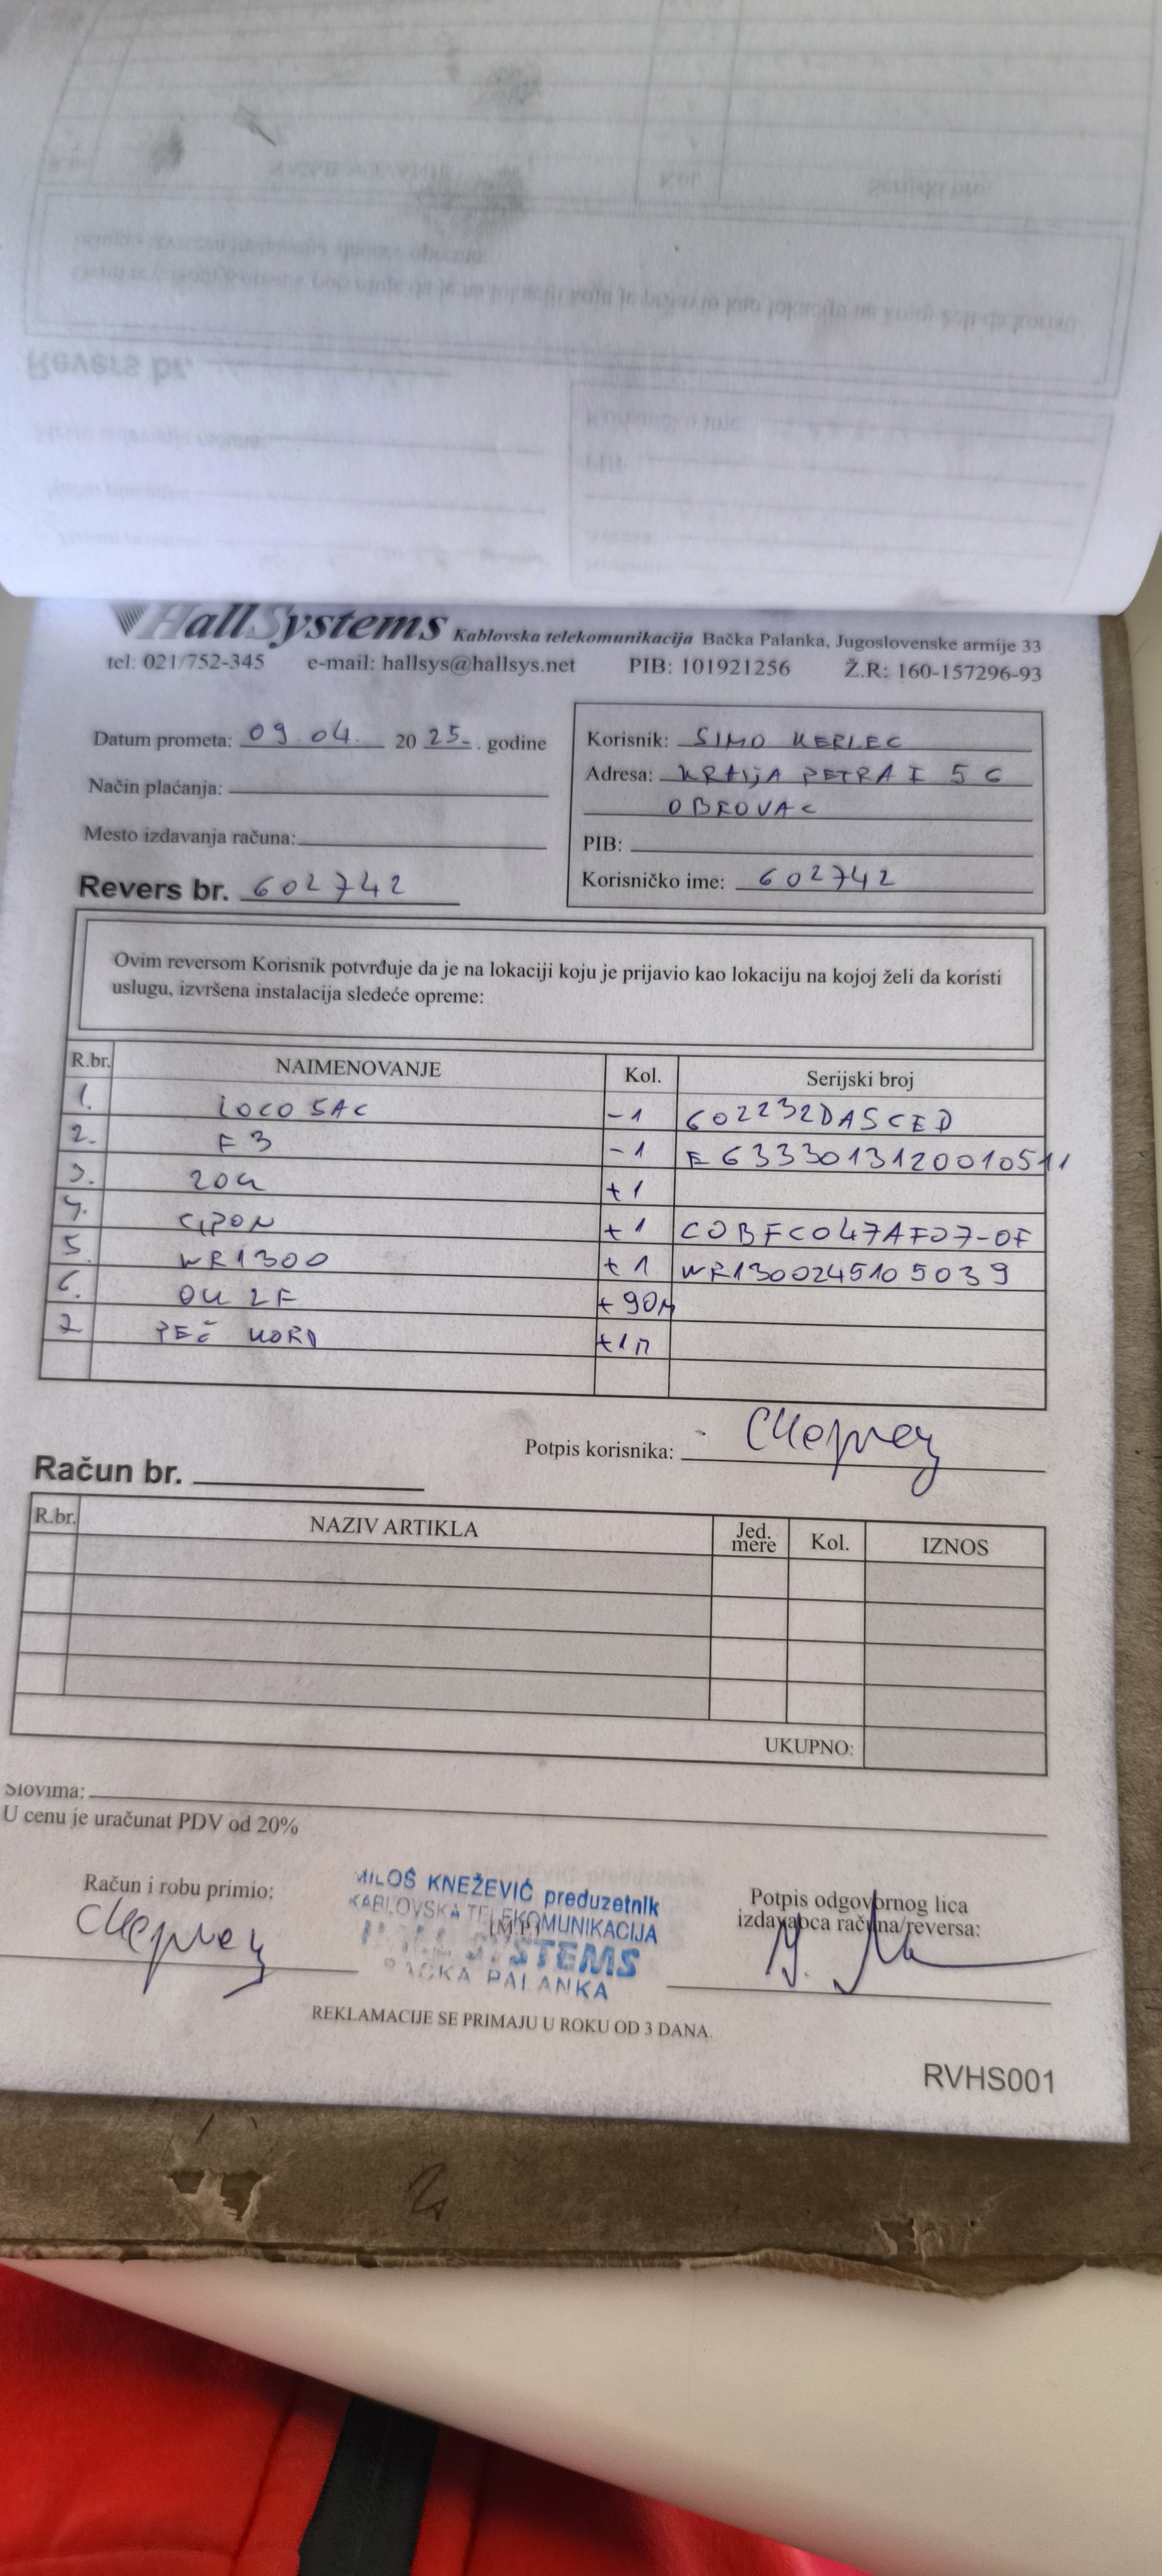 HallSystems Kablovska telekomunikacija Bačka Palanka, Jugoslovenske armije 33
tel: 021/752-345 e-mail: hallsys@hallsys.net PIB: 101921256 Ž.R: 160-157296-93
Datum prometa: 09 04. 20 25. godine
Način plaćanja:
Mesto izdavanja računa:
Revers br. 602742
Korisnik: SIMO KERLEC
Adresa: KRAljA PETRA I 56
OBROVAC
PIB:
Korisničko ime: 602742
Ovim reversom Korisnik potvrđuje da je na lokaciji koju je prijavio kao lokaciju na kojoj želi da koristi
uslugu, izvršena instalacija sledeće opreme:
R.br. NAIMENOVANJE Kol. Serijski broj
1. LOCO 5AC -1 602232DA5CED
2. F3 -1 E6333013120010511
3. +1
4. GPON +1 C0BFC047AF07-0F
5. WR1300 +1 WR1300245105039
6. OK 2F +90M
7 PEČ KORD +1
Potpis korisnika:
Račun br.
R.br. NAZIV ARTIKLA Jed. mere Kol. IZNOS
UKUPNO:
Slovima:
U cenu je uračunat PDV od 20%
Račun i robu primio:
MILOŠ KNEŽEVIĆ preduzetnik
KABLOVSKA TELEKOMUNIKACIJA
(M.P.)
HALL SYSTEMS
BAČKA PALANKA
Potpis odgovornog lica
izdavaoca računa/reversa:
REKLAMACIJE SE PRIMAJU U ROKU OD 3 DANA.
RVHS001